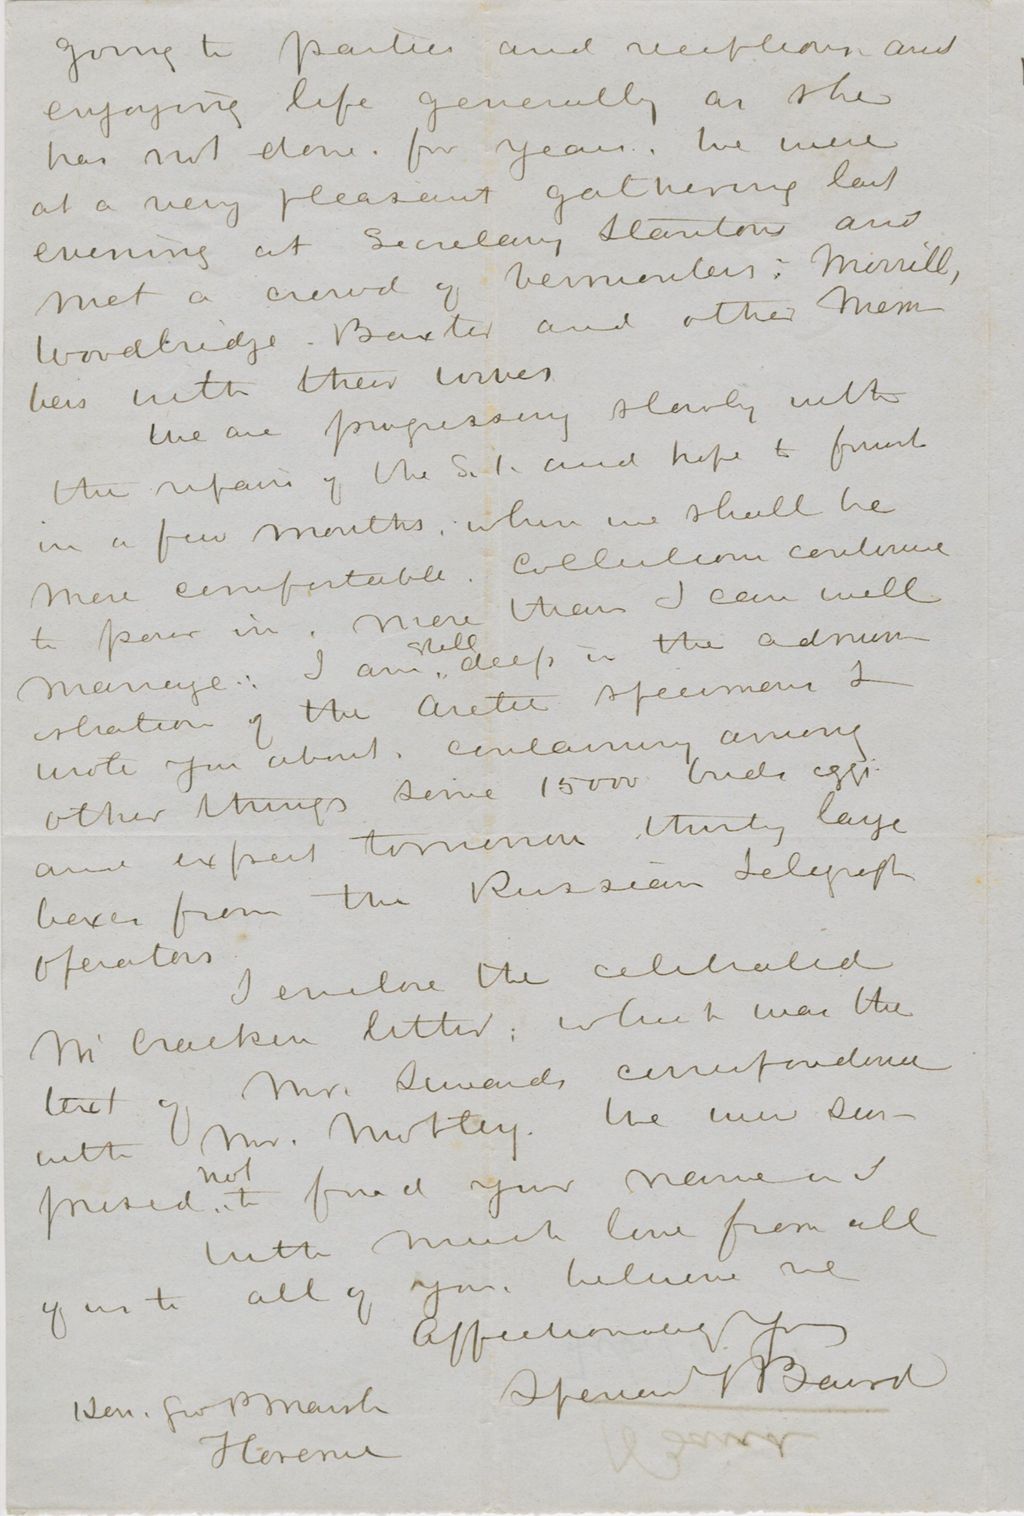 going to parties and receptions and
enjoying life generally as she
has not done for years. We were
at a very pleasant gathering last
evening at Secretary Stantons and
met a crowd of Vermonters: Morrill,
Woodbridge. Baxter and other Mem
bers with their wives
We are progressing slowly with
the repairs of the S.I. and hope to finish
in a few months, when we shall be
more comfortable. Collections continue
to pour in, more than I can well
manage: I am still deep in the admin
istration of the Arctic specimens I
wrote you about, containing among
other things some 15000 birds eggs.
and expect tomorrow thirty large
boxes from the Russian Telegraph
Operators
I enclose the celebrated
Mc Cracken letter; which was the
text of Mr. Sewards correspondence
with Mr. Motley. We were sur-
prised not to find your name in it
With much love from all
of us to all of you, believe me
Affectionately Yours
Spencer F Baird
Hon. Geo P Marsh
Florence